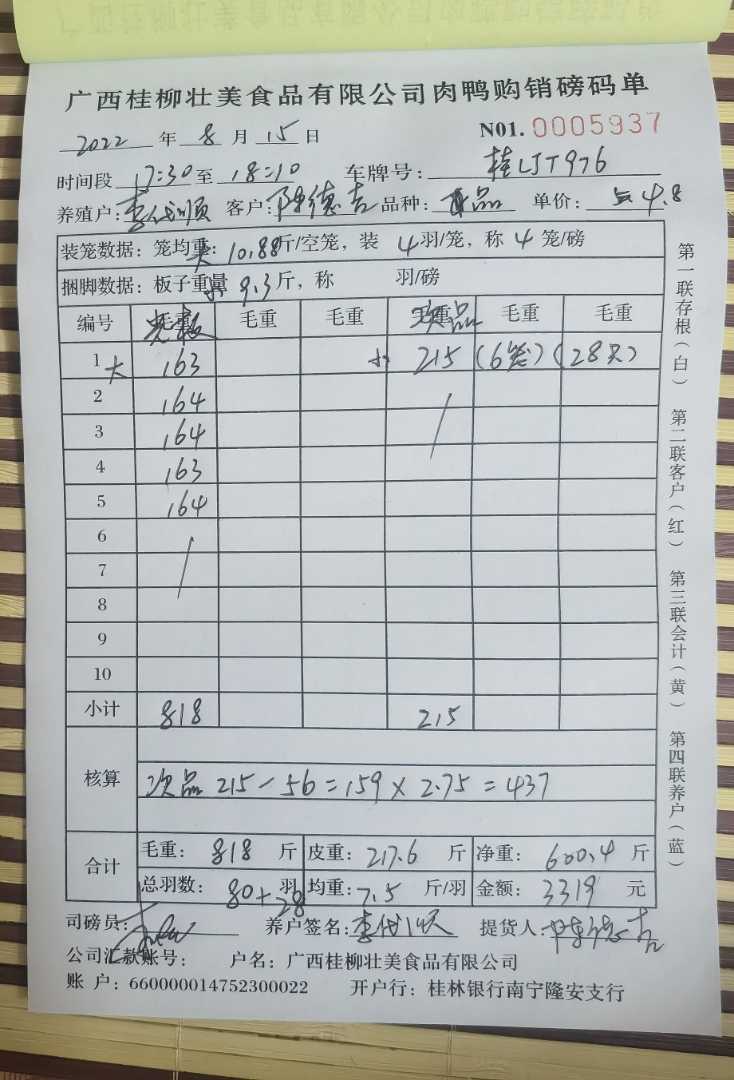 广西桂柳壮美食品有限公司肉鸭购销磅码单
2022 年 8 月 15 日 N01. 0005937
时间段 17:30 至 18:10 车牌号: 桂LJT976
养殖户: 李代顺 客户: 陈德吉 品种: 品 单价: 4.8
装笼数据: 笼均重: 大 10.88 斤/空笼, 装 4 羽/笼, 称 4 笼/磅
捆脚数据: 板子重量 小 9.3 斤, 称 羽/磅
编号 毛重 毛重 次品 毛重 毛重
1 大 163 小 215 (6笼) (28只)
2 164
3 164
4 163
5 164
6
7
8
9
10
小计 818 215
核算 次品 215-56=159×2.75=437
合计 毛重: 818 斤 皮重: 217.6 斤 净重: 600.4 斤
总羽数: 80+28 羽 均重: 7.5 斤/羽 金额: 3319 元
司磅员: 养户签名: 李代顺 提货人: 陈德吉
公司汇款账号: 户名: 广西桂柳壮美食品有限公司
账 户: 660000014752300022 开户行: 桂林银行南宁隆安支行
第一联存根(白) 第二联客户(红) 第三联会计(黄) 第四联养户(蓝)